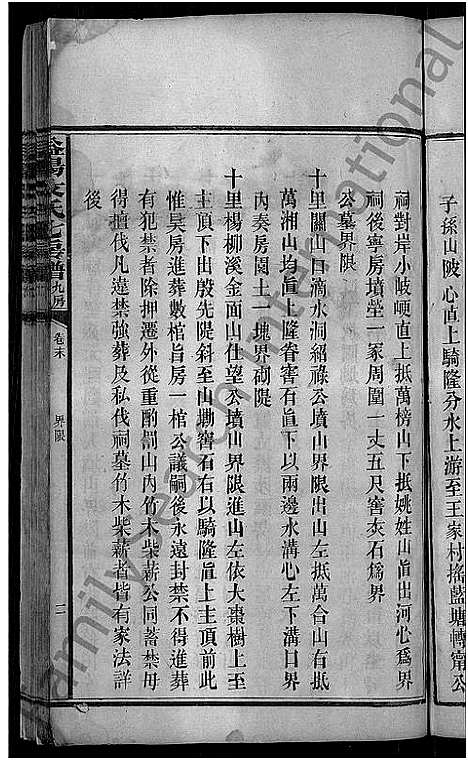 子孫山陂心直上騎隆分水上游至王家村搖藍塘轉甯公
祠對岸小陂㘭直上抵萬榜山下抵姚姓山直出河心爲界
祠後寧房墳塋一冢周圍一丈五尺窖灰石爲界
公墓界限
十里關山口滴水洞紹祿公墳山界限出山左抵萬合山右抵
萬湘山均直上隆脊窖石直下以兩邊水溝心左下溝口界
內奏房園土一塊界砌隄
十里楊柳溪金面山仕望公墳山界限進山左依大棗樹上至
主頂下出殷先隄斜至山坳窖石右以騎隆直上主頂前此
惟昊房進葬數棺旨房一棺公議嗣後永遠封禁不得進葬
有犯禁者除押遷外從重酌罰山內竹木柴薪公同蓄禁毋
得擅伐凡違禁強葬及私伐祠墓竹木柴薪者皆有家法詳
後
益陽文氏七房譜 九房
卷末
界限
二
FamilySearch International